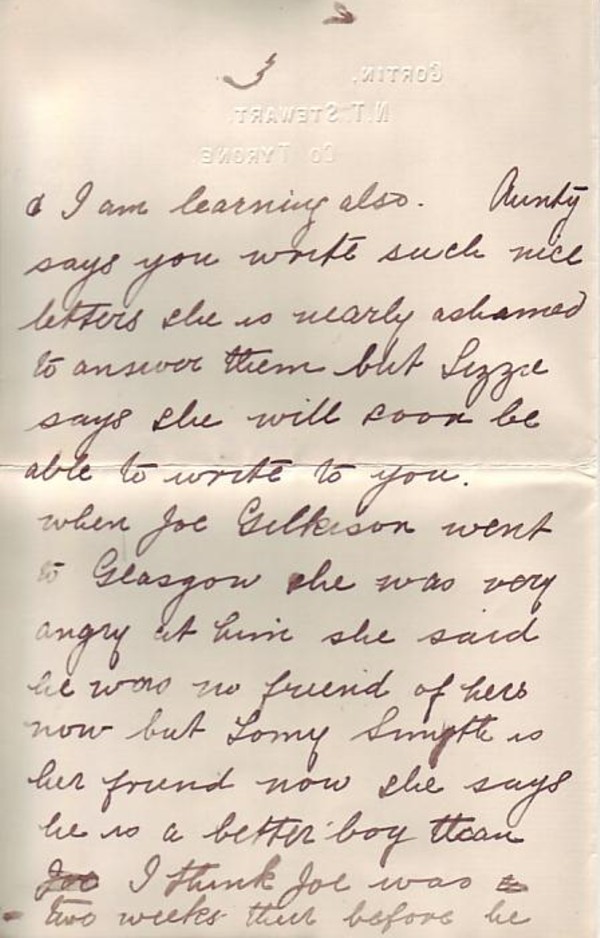 3
GORTIN.
N.T. STEWART.
CO TYRONE
& I am learning also. Aunty
says you write such nice
letters she is nearly ashamed
to answer them but Lizzie
says she will soon be
able to write to you.
when Joe Gilkison went
to Glasgow she was very
angry at him she said
he was no friend of hers
now but Tomy Smyth is
her friend now she says
he is a better boy than
Joe I think Joe was a
two weeks there before he